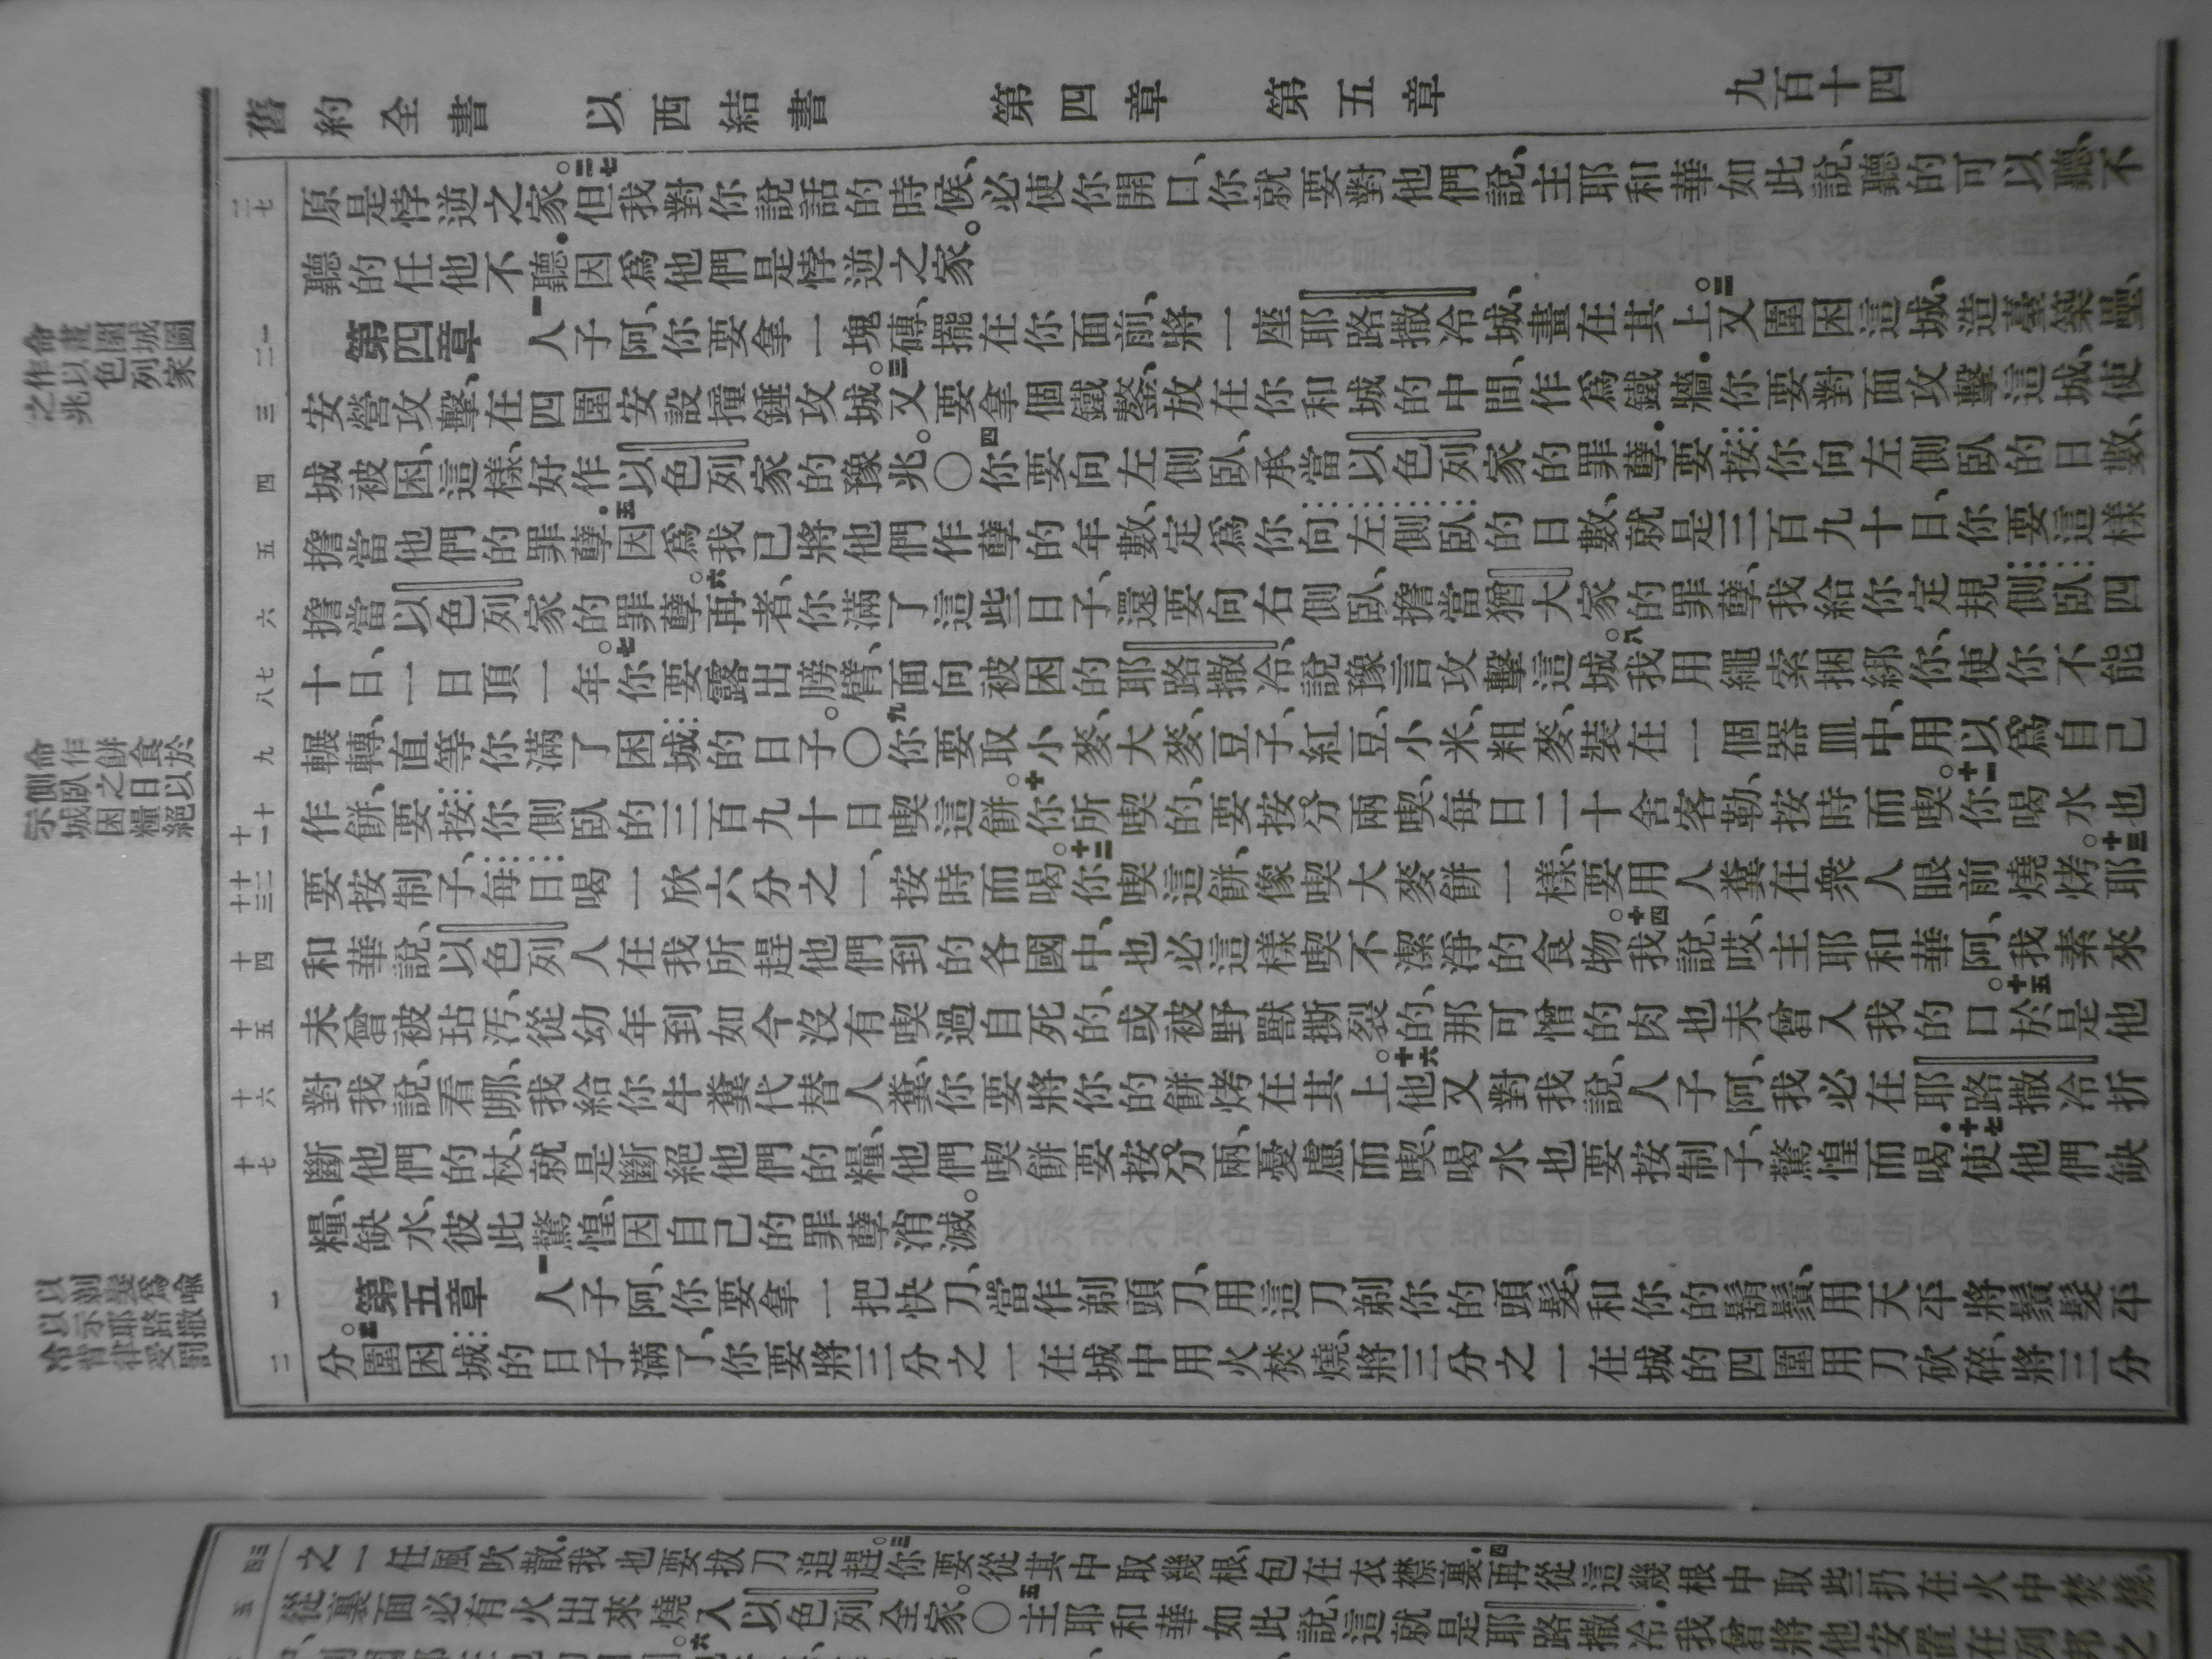 舊約全書 以西結書 第四章 第五章 九百十四
二七
原是悖逆之家。二七但我對你說話的時候、必使你開口、你就要對他們說、主耶和華如此說、聽的可以聽、不
聽的任他不聽．因爲他們是悖逆之家。
命畫圍城圖
作以色列家
之兆
一二
第四章 一人子阿、你要拿一塊磚、擺在你面前、將一座耶路撒冷城、畫在其上。二又圍困這城、造臺築壘、
三
安營攻擊、在四圍安設撞錘攻城。三又要拿個鐵鏊、放在你和城的中間、作爲鐵牆．你要對面攻擊這城、使
四
城被困、這樣、好作以色列家的豫兆。〇四你要向左側臥、承當以色列家的罪孽．要按你向左側臥的日數、
五
擔當他們的罪孽．五因爲我已將他們作孽的年數、定爲你向左側臥的日數、就是三百九十日、你要這樣
六
擔當以色列家的罪孽。六再者、你滿了這些日子、還要向右側臥、擔當猶大家的罪孽、我給你定規側臥四
七八
十日、一日頂一年。七你要露出膀臂、面向被困的耶路撒冷、說豫言攻擊這城。八我用繩索捆綁你、使你不能
命作餅食於
側臥之日以
示城困糧絕
九
輾轉、直等你滿了困城的日子。〇九你要取小麥、大麥、豆子、紅豆、小米、粗麥、裝在一個器皿中、用以爲自己
十十一
作餅、要按你側臥的三百九十日喫這餅。十你所喫的、要按分兩喫、每日二十舍客勒、按時而喫。十一你喝水也
十二十三
要按制子、每日喝一欣六分之一、按時而喝。十二你喫這餅、像喫大麥餅一樣、要用人糞在衆人眼前燒烤。十三耶
十四
和華說、以色列人在我所趕他們到的各國中、也必這樣喫不潔淨的食物。十四我說、哎、主耶和華阿、我素來
十五
未曾被玷污、從幼年到如今沒有喫過自死的、或被野獸撕裂的、那可憎的肉也未曾入我的口。十五於是他
十六
對我說、看哪、我給你牛糞代替人糞、你要將你的餅烤在其上。十六他又對我說、人子阿、我必在耶路撒冷折
十七
斷他們的杖、就是斷絕他們的糧、他們喫餅要按分兩、憂慮而喫、喝水也要按制子、驚惶而喝．十七使他們缺
糧、缺水、彼此驚惶、因自己的罪孽消滅。
以剃髮爲喻
以示耶路撒
冷背律受罰
一
第五章 一人子阿、你要拿一把快刀、當作剃頭刀、用這刀剃你的頭髮、和你的鬍鬚、用天平將鬚髮平
二
分。二圍困城的日子滿了、你要將三分之一在城中用火焚燒、將三分之一在城的四圍用刀砍碎、將三分
三四
之一任風吹散．我也要拔刀追趕。三你要從其中取幾根、包在衣襟裏．四再從這幾根中取些扔在火中焚燒、
五
從裏面必有火出來燒入以色列全家。〇五主耶和華如此說、這就是耶路撒冷．我曾將他安置在列邦之